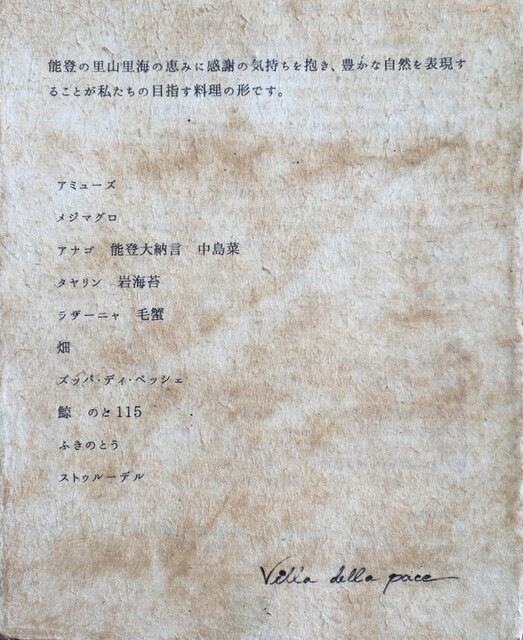 能登の里山里海の恵みに感謝の気持ちを抱き、豊かな自然を表現す
ることが私たちの目指す料理の形です。
アミューズ
メジマグロ
アナゴ　能登大納言　中島菜
タヤリン　岩海苔
ラザーニャ　毛蟹
畑
ズッパ・ディ・ペッシェ
鯨　のと115
ふきのとう
ストゥルーデル
Villa della pace